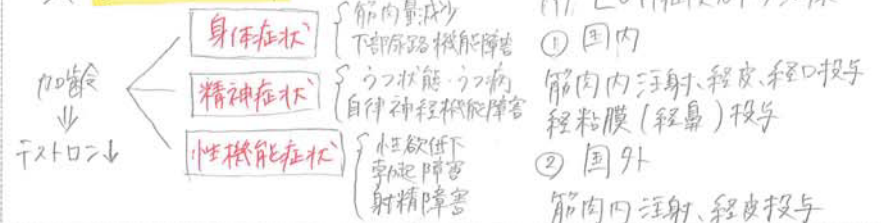 身体症状
筋肉量減少
下部尿路機能障害
加齢
⇓
テストロン↓
精神症状
うつ状態・うつ病
自律神経機能障害
性機能症状
性欲低下
勃起障害
射精障害
① 国内
筋肉内注射、経皮、経口投与
経粘膜(経鼻)投与
② 国外
筋肉内注射、経皮投与